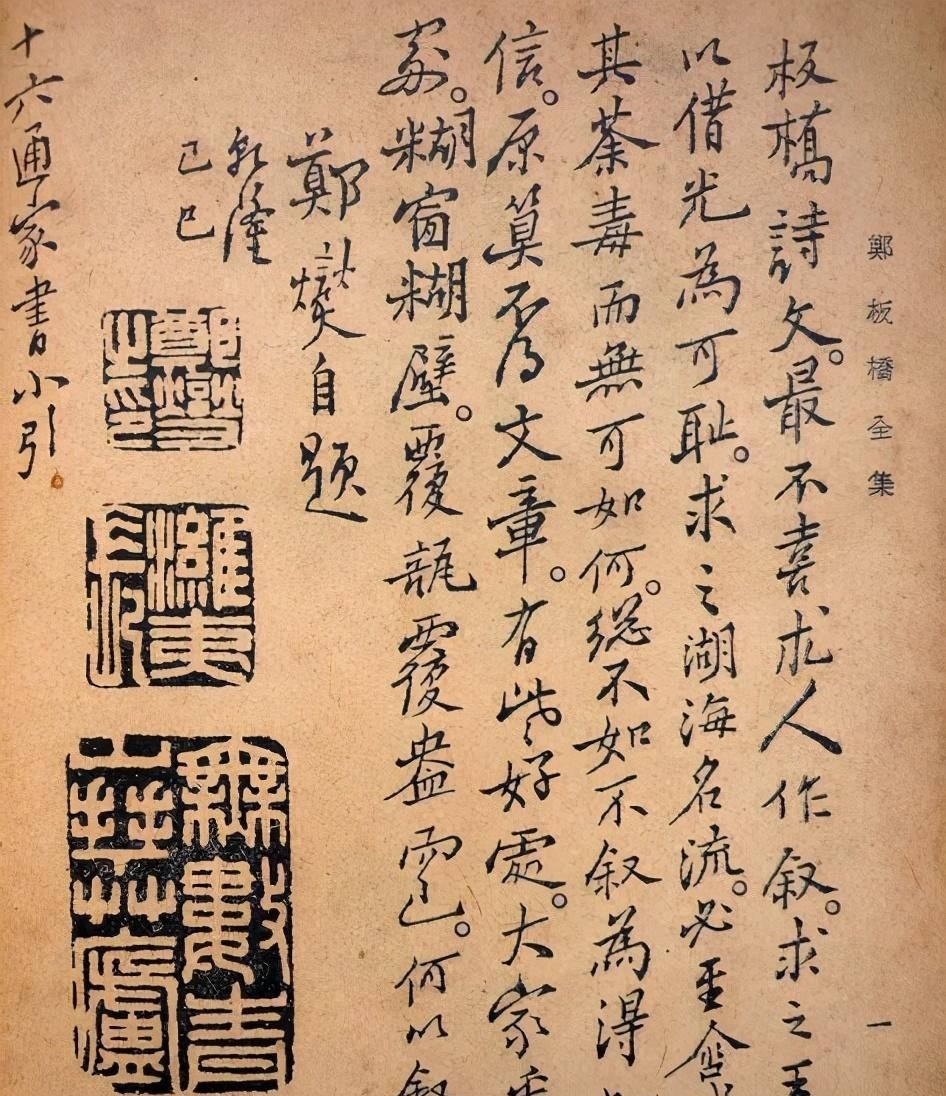 鄭板橋全集
一
板橋詩文。最不喜求人作叙。求之王
以借光為可耻。求之湖海名流。必至含
其荼毒而無可如何。總不如不叙為得
信。原算不得文章。有些好處。大家
處。糊窗糊壁。覆瓿覆盎而已。何以叙
鄭燮自題
乾隆
己巳
鄭燮之印
濰夷長
無數青山拜草廬
十六通家書小引